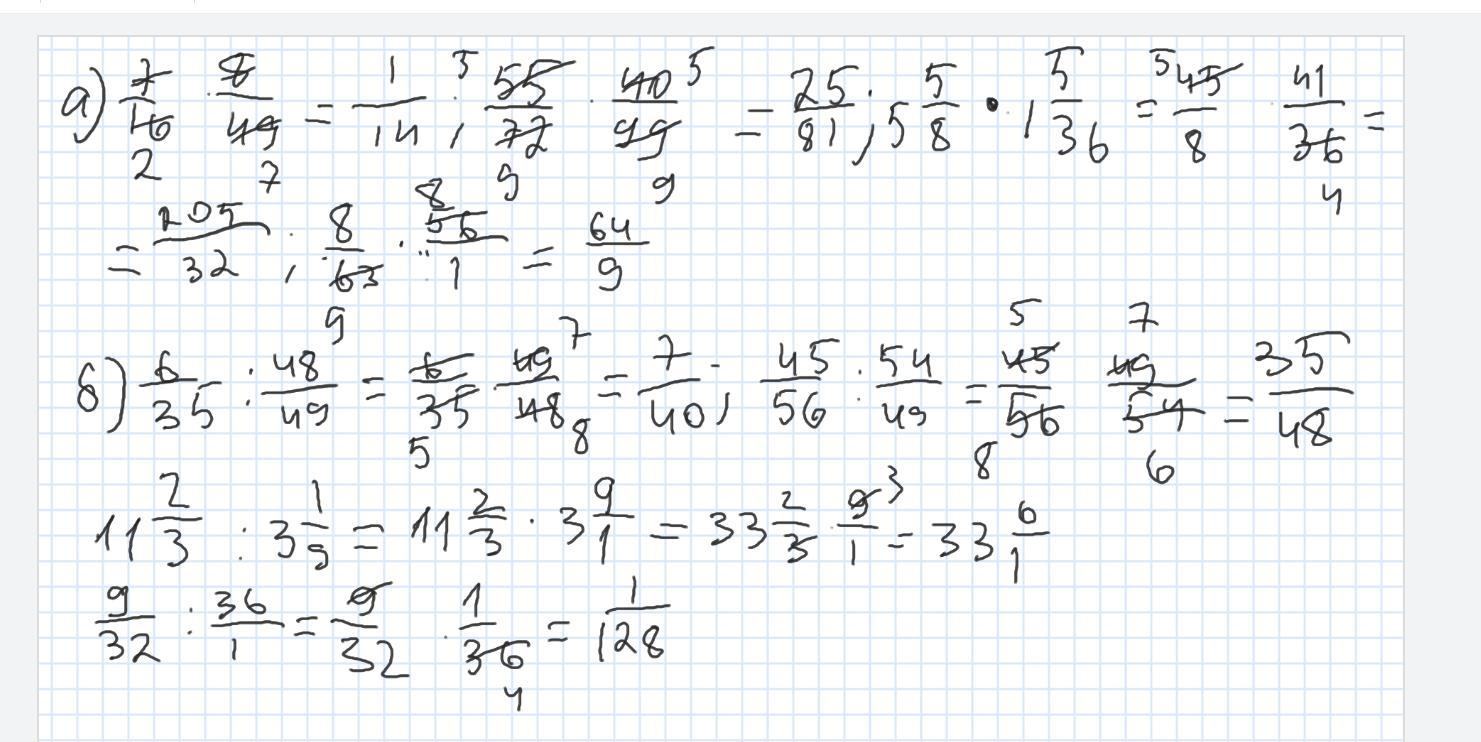 а) 7/16 · 8/49 = 1/14; 55/72 · 40/99 = 25/81; 5 5/8 · 1 5/36 = 45/8 · 41/36 =
= 205/32; 8/63 · 56/1 = 64/9
б) 6/35 : 48/49 = 6/35 · 49/48 = 7/40; 45/56 : 54/49 = 45/56 49/54 = 35/48
11 2/3 : 3 1/9 = 11 2/3 · 3 9/1 = 33 2/3 · 9/1 = 33 6/1
9/32 : 36/1 = 9/32 · 1/36 = 1/128